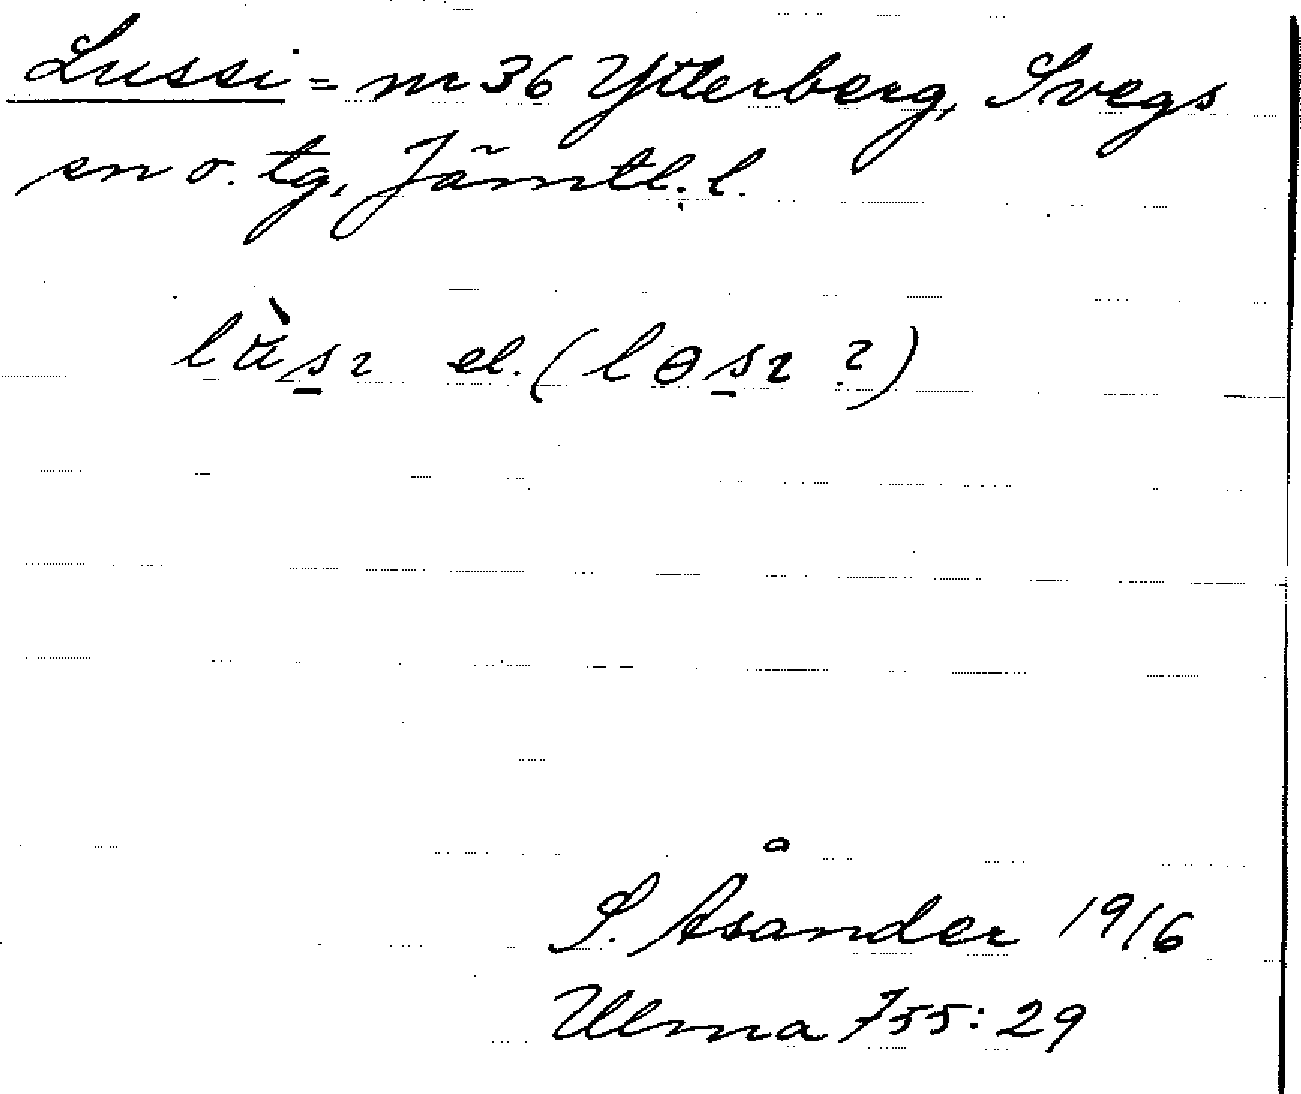 Lussi = nr 36 Ytterberg, Svegs
sn o. tg, Jämtl. l.
lùsɩ el. (lɵsɩ ?)
S. Åsander 1916
Ulma 755:29